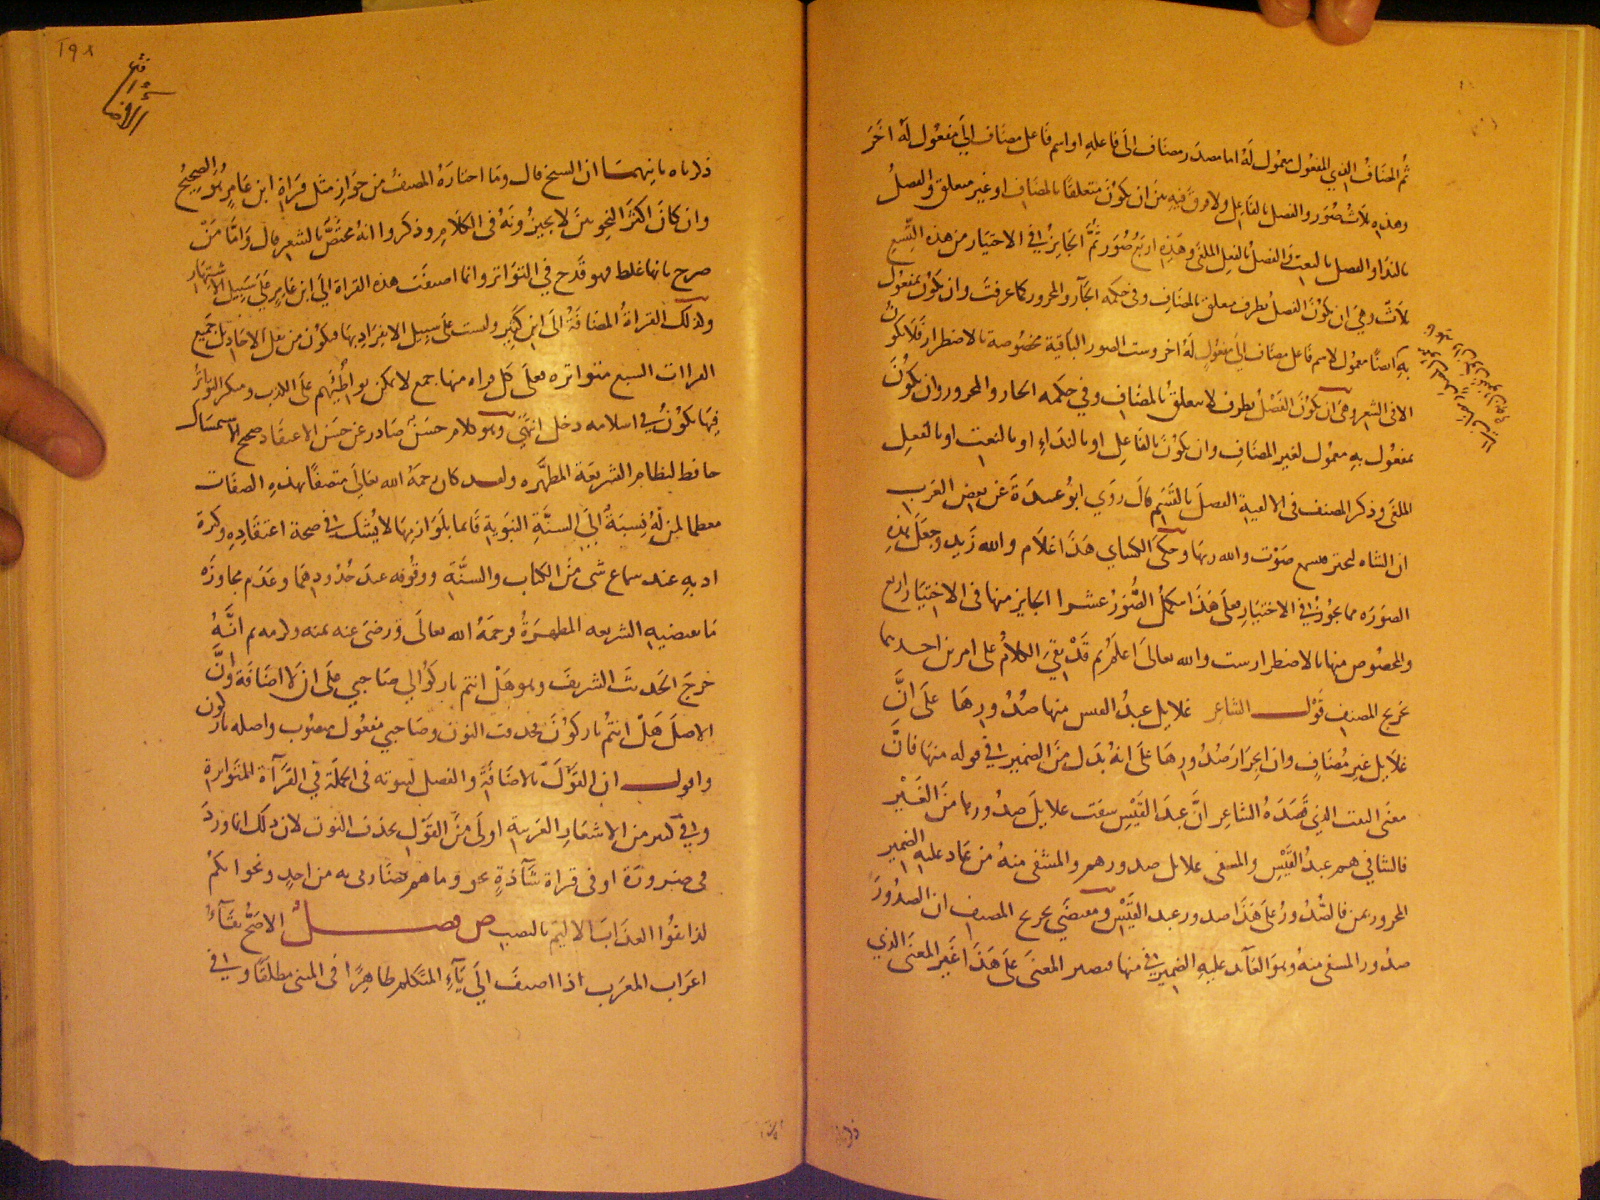 ثم المضاف الذي المفعول معمول له اما مصدر مضاف الى فاعله او اسم فاعل مضاف الى مفعول له اخر
وهذه ثلاث صور والفصل بالفاعل ولا فرق فيه بين ان يكون متعلقا بالمضاف او غير متعلق والفصل
بالندا والفصل بالنعت والفصل بالفعل الملغى وهذه اربع صور ثم الجايز في الاختيار من هذه التسع
ثلاث وهي ان يكون الفصل بظرف متعلق بالمضاف وفي حكمه الجار والمجرور كما عرفت وان يكون بمفعول
به ايضا معمول لاسم فاعل مضاف الى مفعول له اخر وست الصور الباقية مخصوصة بالاضطرار فلا تكون
الا في الشعر وهي ان يكون الفصل بظرف لا يتعلق بالمضاف وفي حكمه الجار والمجرور وان يكون
بمفعول به معمول لغير المضاف وان يكون بالفاعل او بالنداء او بالنعت او بالفعل
الملغى وذكر المصنف في الالفية الفصل بالقسم قال روي ابو عبيدة عن بعض العرب
ان الشاه لتجتر فتسمع صوت والله ربها وحكى الكساي هذا غلام والله زيد وجعل هذه
الصوره مما يجوز في الاختيار فعلى هذا تكمل الصور عشرا الجايز منها في الاختيار اربع
والمخصوص منها بالاضطرار ست والله تعالى اعلم ثم قد بقي الكلام على امرين احدهما
تخريج المصنف قول الشاعر غلايل عبد القيس منها صدورها على ان
غلايل غير مضاف وان انجرار صدورها على انه بدل من الضمير في قوله منها فان
معنى البيت الذي قصده الشاعر ان عبد القيس شفت غلايل صدورها من الغير
فالشافي هم عبد القيس والمشفى غلايل صدورهم والمشفى منه من عاد عليه الضمير
المجرور بمن فالصدور على هذا صدور عبد القيس ومقتضى تخريج المصنف ان الصدور
صدور المشفى منه وهو العائد عليه الضمير في منها فيصير المعنى على هذا غير المعنى الذي
٢٩٨
ذكرناه ثانيهما ان الشيخ قال وما اختاره المصنف من جواز مثل قراة ابن عامر هو الصحيح
وان كان اكثر النحويين لا يجيزونه في الكلام وذكروا انه مختص بالشعر قال واما من
صرح بانها غلط فهو قدح في التواتر وانما اضيفت هذه القراة الى ابن عامر على سبيل الاشتهار
وكذلك القراة المضافة الى ابن كثير وليست على سبيل الانفراد بها فيكون من نقل الاحاد بل جميع
القراات السبع متواتره نقل كل قراه منها جمع لا يمكن تواطئهم على الكذب ومنكر التواتر
فيها يكون في اسلامه دخل انتهى وهو كلام حسن صادر عن حسن الاعتقاد صحيح الاستمساك
حافظ لنظام الشريعة المطهره ولقد كان رحمه الله تعالى متصفا بهذه الصفات
معظما لمن له نسبة الى السنة النبوية قائما بلوازمها لا يشك في صحة اعتقاده وكثرة
ادبه عند سماع شى من الكتاب والسنة ووقوفه عند حدودهما وعدم مجاوزه
ما تقتضيه الشريعه المطهرة فرحمه الله تعالى ورضي عنه بمنه وكرمه ثم انه
خرج الحديث الشريف وهو هل انتم تاركو لي صاحبي على ان لا اضافة وان
الاصل هل انتم تاركون فحذفت النون وصاحبي مفعول منصوب واصله تاركون
واقول ان القول بالاضافة والفصل لثبوته في الجملة في القرآة المتواترة
وفي كثير من الاشعار العربية اولى من القول بحذف النون لان ذلك انما ورد
في ضرورة او في قراة شاذة نحو وما هم بضاري به من احد ونحو انكم
لذائقوا العذاب الاليم بالنصب ص فصل الاصح بقاء
اعراب المعرب اذا اضيف الى ياء المتكلم ظاهرا في المثنى مطلقا وفي